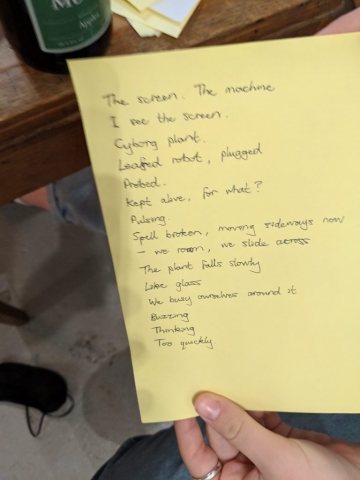 Apples
The screen. The machine
I see the screen.
Cyborg plant.
Leafed robot, plugged
Probed.
Kept alive, for what?
Pulsing.
Spell broken, moving sideways now
- we roam, we slide across
The plant falls slowly
Like glass
We busy ourselves around it
Buzzing
Thinking
Too quickly.